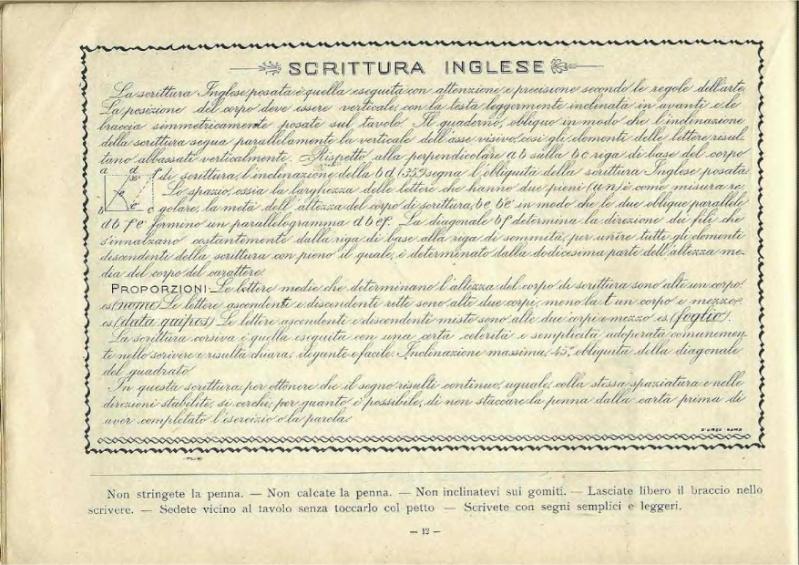 SCRITTURA INGLESE
La scrittura Inglese posata è quella eseguita con attenzione e precisione secondo le regole dell'arte
La posizione del corpo deve essere verticale, con la testa leggermente inclinata in avanti e le
braccia simmetricamente posate sul tavolo. Il quaderno, obliquo in modo che l'inclinazione
della scrittura segua parallelamente la verticale dell'asse visivo, così gli elementi delle lettere risul
tano abbassati verticalmente. Rispetto alla perpendicolare a b sulla b c riga di base del corpo
di scrittura, l'inclinazione della b d (35°) segna l'obliquità della scrittura Inglese posata.
Lo spazio, ossia la larghezza delle lettere che hanno due pieni (u n) è come misura re
golare, la metà dell'altezza del corpo di scrittura, b e, b'e' in modo che le due oblique parallele
d b f e formino un parallelogramma d b e f. La diagonale b f determina la direzione dei fili che
s'innalzano costantemente dalla riga di base alla riga di sommità, per unire tutti gli elementi
discendenti della scrittura con pieno il quale, è determinato dalla dodicesima parte dell'altezza me-
dia del corpo del carattere.
PROPORZIONI- Le lettere medie che determinano l'altezza del corpo di scrittura sono alte un corpo
es. (nome) Le lettere ascendenti e discendenti rette sono alte due corpi, meno la t un corpo e mezzo
es. (data quipos) Le lettere ascendenti e discendenti miste sono alte due corpi e mezzo es. (foglio).
La scrittura corsiva è quella eseguita con una certa celerità e semplicità adoperata comunemen-
te nello scrivere e risulta chiara, elegante e facile. Inclinazione massima 45° obliquità della diagonale
del quadrato
In questa scrittura, per ottenere che il segno risulti continuo, uguale, colla stessa spaziatura e nelle
direzioni stabilite, si cerchi, per quanto è possibile, di non staccare la penna dalla carta prima di
aver completato l'esercizio o la parola.
Non stringete la penna. — Non calcate la penna. — Non inclinatevi sui gomiti. — Lasciate libero il braccio nello
scrivere. — Sedete vicino al tavolo senza toccarlo col petto — Scrivete con segni semplici e leggeri.
— 12 —